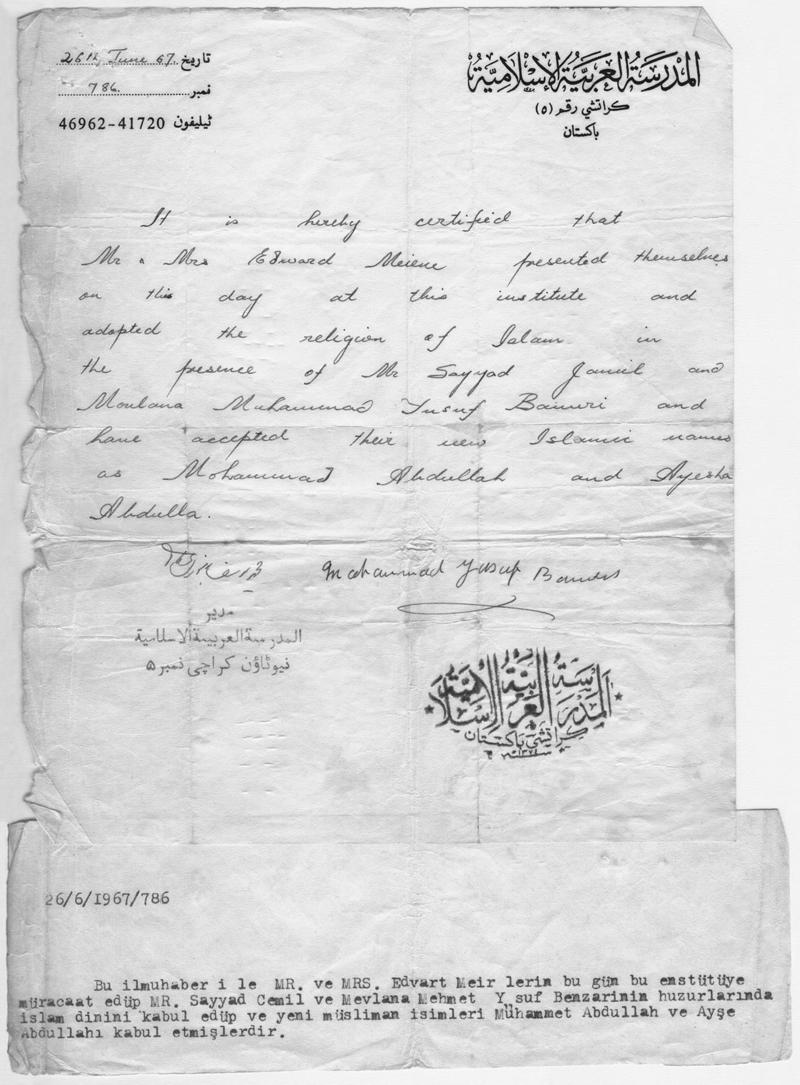 المدرسة العربية الإسلامية
كراتشي رقم (٥)
باكستان
تاريخ 26th June 67.
نمبر 786.
ٹیلیفون 46962-41720
It is hereby certified that
Mr & Mrs Edward Meiene presented themselves
on this day at this institute and
adopted the religion of Islam in
the presence of Mr Sayyad Jamil and
Moulana Muhammad Yusuf Banuri and
have accepted their new Islamic names
as Mohammad Abdullah and Ayesha
Abdulla.
Mohammad Yusuf
مدیر
المدرسة العربیة الاسلامیة
نیوٹاؤن کراچی نمبر ۵
المدرسة العربية الإسلامية
كراتشي باكستان
26/6/1967/786
Bu ilmuhaber i le MR. ve MRS. Edvart Meir lerin bu gün bu enstütüye
müracaat edüp MR. Sayyad Cemil ve Mevlana Mehmet Y suf Benzarinin huzurlarında
islam dinini kabul edüp ve yeni müsliman isimleri Muhammet Abdullah ve Ayşe
Abdullahı kabul etmişlerdir.